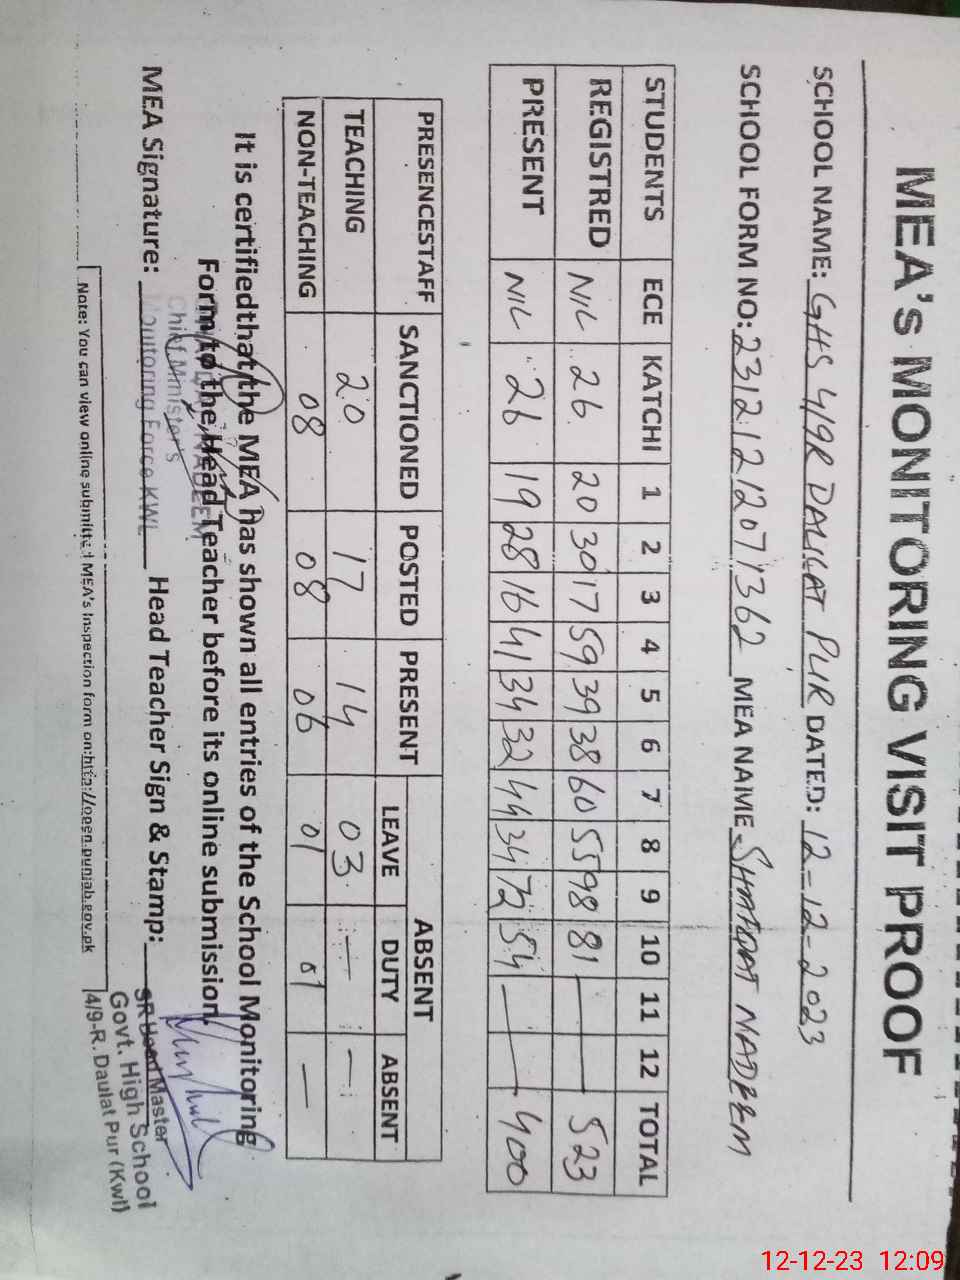 MEA's MONITORING VISIT PROOF
SCHOOL NAME: GHS 4/9R DAULAT PUR DATED: 12-12-2023
SCHOOL FORM NO: 23121212071362 MEA NAME SHAFQAT NADEEM
STUDENTS ECE KATCHI 1 2 3 4 5 6 7 8 9 10 11 12 TOTAL
REGISTRED NIL 26 20 30 17 59 39 38 60 55 98 81 — 523
PRESENT NIL 26 19 28 16 41 34 32 44 34 72 54 — 400
PRESENCESTAFF SANCTIONED POSTED PRESENT ABSENT
LEAVE DUTY ABSENT
TEACHING 20 17 14 03 — —
NON-TEACHING 08 08 06 01 01 —
It is certifiedthat the MEA has shown all entries of the School Monitoring
Form to the Head Teacher before its online submission.
NADEEM
Chief Minister's
Monitoring Force KWL
MEA Signature: Head Teacher Sign & Stamp:
SR Head Master
Govt. High School
4/9-R. Daulat Pur (Kwl)
Note: You can view online submitted MEA's Inspection form on:http://open.punjab.gov.pk
12-12-23 12:09